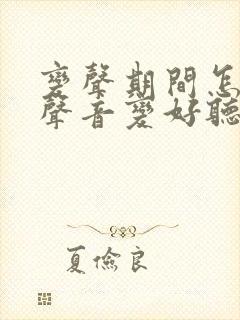 變聲期間怎
聲音變好聽
夏儉良